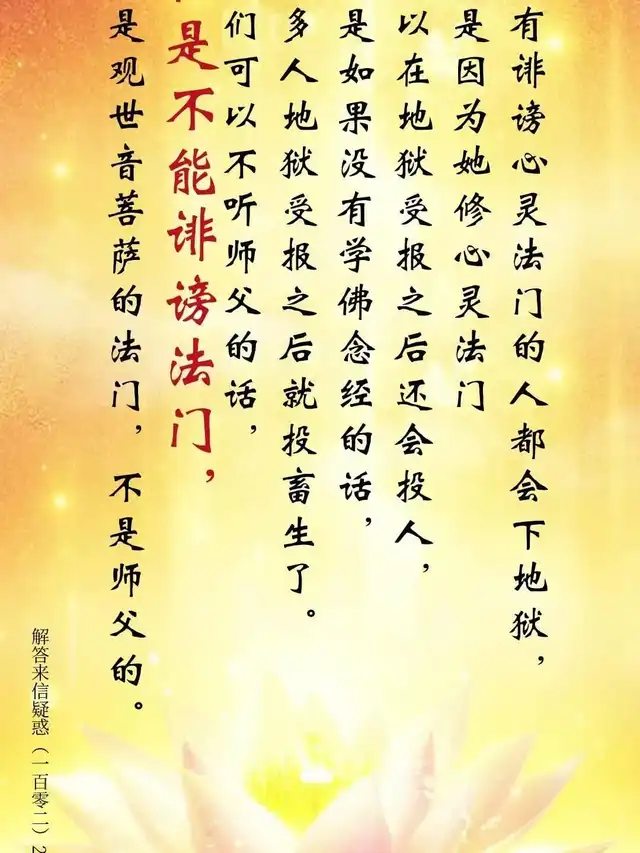 有诽谤心灵法门的人都会下地狱，
是因为她修心灵法门
以在地狱受报之后还会投人，
是如果没有学佛念经的话，
多人地狱受报之后就投畜生了。
们可以不听师父的话，
是不能诽谤法门，
是观世音菩萨的法门，不是师父的。
解答来信疑惑（一百零二）2